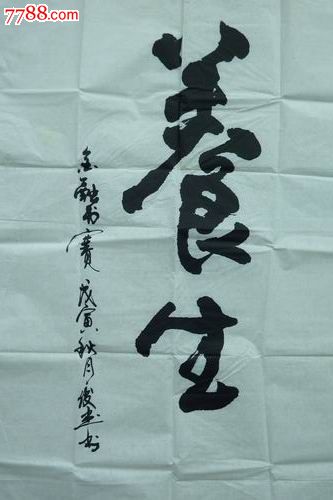 7788.com
養生
金融书赛 戊寅秋月 俊杰书